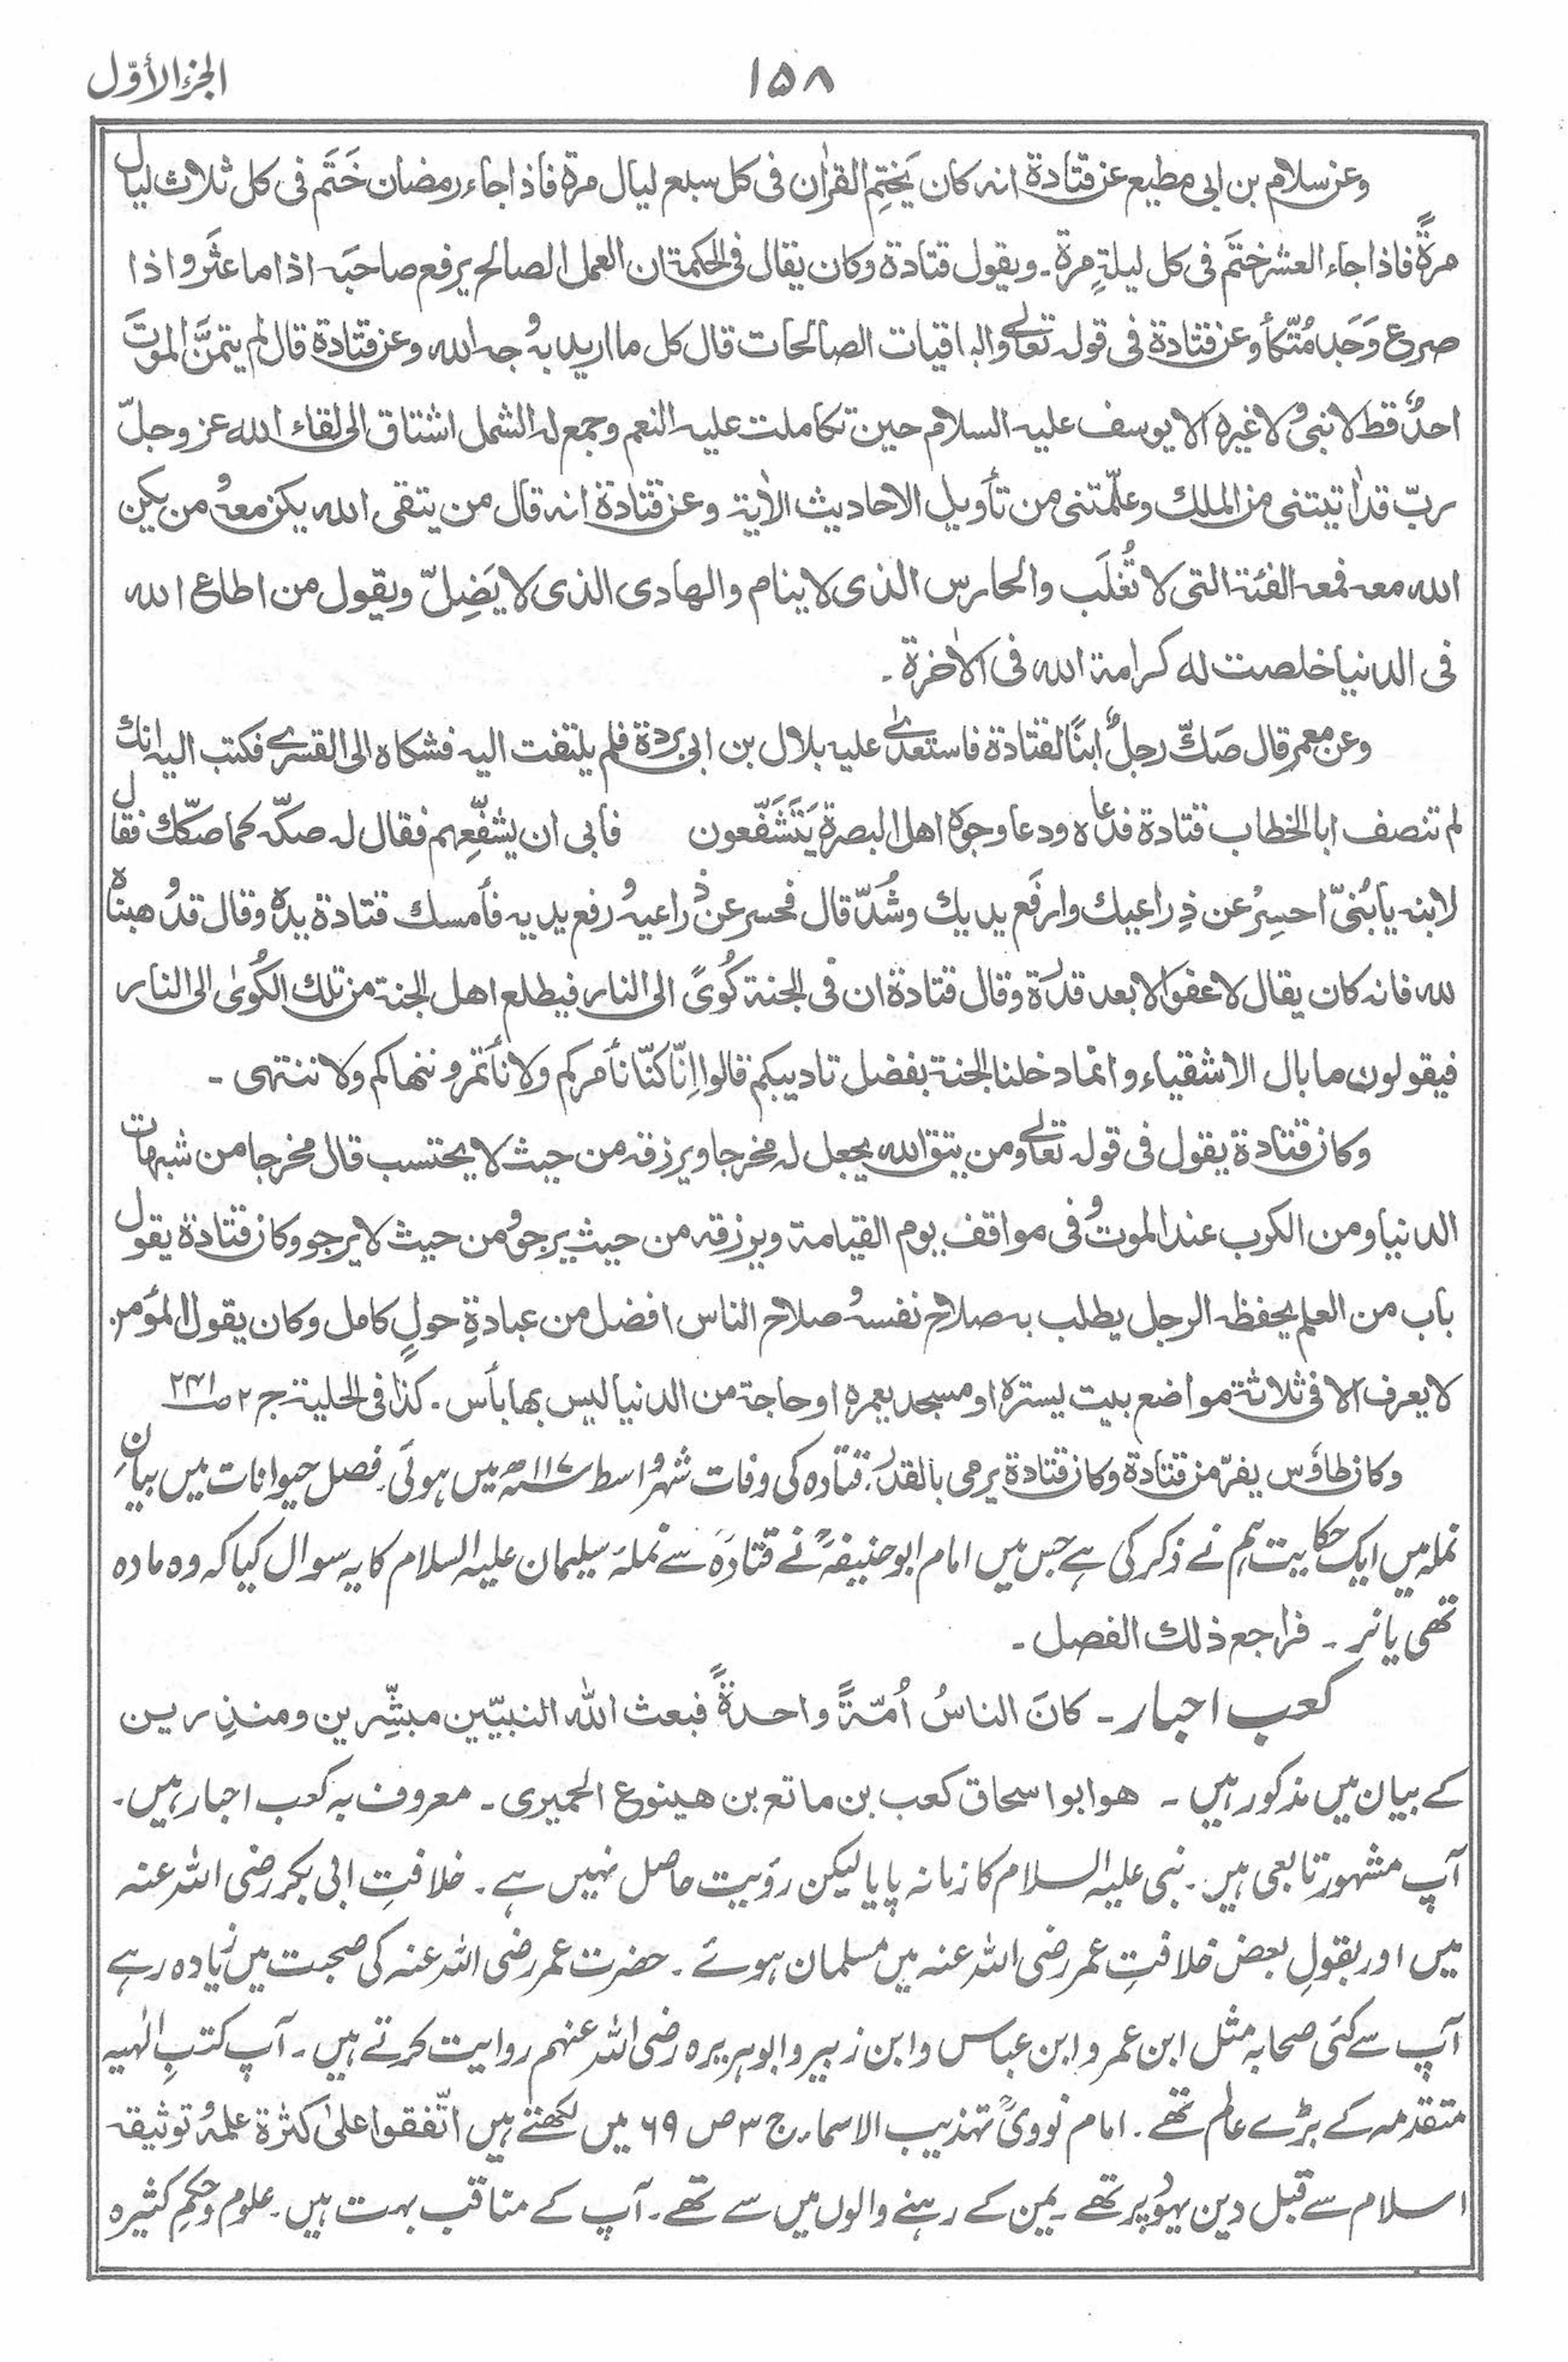 الجزء الأوّل
۱۵۸
وعن سلام بن ابی مطیع عن قتادة انہ کان یَختِم القراٰن فی کل سبع لیال مرة فاذا جاء رمضان خَتَم فی کل ثلاث لیال
مرةً فاذا جاء العشر ختَم فی کل لیلةٍ مرة ۔ ویقول قتادة وکان یقال فی الحکمة ان العمل الصالح یرفع صاحبَہ اذا ما عثَر واذا
صرع وَجَد مُتّکأ وعن قتادة فی قولہ تعالٰے والباقیات الصالحات قال کل ما ارید بہ وجہ اللہ وعن قتادة قال لم یتمنَّ الموتَ
احدٌ قط لا نبیٌ ولا غیرہ الا یوسف علیہ السلام حین تکاملت علیہ النعم وجمع لہ الشمل اشتاق الی لقاء اللہ عز وجلّ
ربّ قد اٰتیتنی من الملك وعلّمتنی من تأویل الاحادیث الاٰیة وعن قتادة انہ قال من یتقی اللہ یکن معہ ومن یکن
اللہ معہ فمعہ الفئة التی لا تُغلَب والحارس الذی لا ینام والہادی الذی لا یَضِلّ ویقول من اطاع اللہ
فی الدنیا خلصت لہ کرامة اللہ فی الاٰخرة ۔
وعن معمر قال صَكّ رجلٌ ابنًا لقتادة فاستعدٰی علیہ بلال بن ابی بردة فلم یلتفت الیہ فشکاہ الی القسری فکتب الیہ انك
لم تنصف ابا الخطاب قتادة فدعاہ ودعا وجوہ اھل البصرة یَتَشَفّعون فابی ان یشفّعہم فقال لہ صکّہ کما صکّك فقال
لابنہ یا بُنیّ احسِرْ عن ذِراعیك وارفَع یدیك وشُدّ قال فحسر عن ذراعیہ ورفع یدیہ فأمسك قتادة یدہ وقال قد وھبناہ
للہ فانہ کان یقال لا عفو الا بعد قدرة وقال قتادة ان فی الجنة کُویً الی النار فیطلع اھل الجنة من تلك الکُویٰ الی النار
فیقولون ما بال الاشقیاء وانما دخلنا الجنة بفضل تادیبکم قالوا اِنّا کنّا نأمرکم ولا نأتمر وننھاکم ولا ننتھی ۔
وکان قتادة یقول فی قولہ تعالٰے ومن یتق اللہ یجعل لہ مخرجا ویرزقہ من حیث لا یحتسب قال مخرجا من شبہات
الدنیا ومن الکرب عند الموت وفی مواقف یوم القیامة ویرزقہ من حیث یرجو ومن حیث لا یرجو وکان قتادة یقول
باب من العلم یحفظہ الرجل یطلب بہ صلاح نفسہ وصلاح الناس افضل من عبادةِ حولٍ کامل وکان یقول المؤمن
لا یعرف الا فی ثلاثة مواضع بیت یسترہ او مسجد یعمرہ او حاجة من الدنیا لیس بھا بأس ۔ کذا فی الحلیة ج ۲ ص
وکان طاؤس یفرّ من قتادة وکان قتادة یرمی بالقدر ۔ قتادہ کی وفات شہر واسط ۱۱۷ھ میں ہوئی ۔ فصل حیوانات میں بیانِ
نملہ میں ایک حکایت ہم نے ذکر کی ہے جس میں امام ابو حنیفہؒ نے قتادہؒ سے نملۂ سلیمان علیہ السلام کا یہ سوال کیا کہ وہ مادہ
تھی یا نر ۔ فراجع ذلك الفصل ۔
کعب احبار ۔ کانَ الناسُ اُمّةً واحدةً فبعث اللہ النبیّین مبشِّرین ومنذِرین
کے بیان میں مذکور ہیں ۔ ھو ابو اسحاق کعب بن ماتع بن ھینوع الحمیری ۔ معروف بہ کعب احبار ہیں ۔
آپ مشہور تابعی ہیں ۔ نبی علیہ السلام کا زمانہ پایا لیکن رؤیت حاصل نہیں ہے ۔ خلافتِ ابی بکر رضی اللہ عنہ
میں اور بقولِ بعض خلافتِ عمر رضی اللہ عنہ میں مسلمان ہوئے ۔ حضرت عمر رضی اللہ عنہ کی صحبت میں زیادہ رہے
آپ سے کئی صحابہ مثل ابن عمر و ابن عباس و ابن زبیر و ابوہریرہ رضی اللہ عنہم روایت کرتے ہیں ۔ آپ کتبِ الٰہیہ
متقدمہ کے بڑے عالم تھے ۔ امام نوویؒ تہذیب الاسماء ج ۳ ص ۶۹ میں لکھتے ہیں اتّفقوا علیٰ کثرة علمہ وتوثیقہ
اسلام سے قبل دین یہود پر تھے ۔ یمن کے رہنے والوں میں سے تھے ۔ آپ کے مناقب بہت ہیں ۔ علوم وحِکَمِ کثیرہ